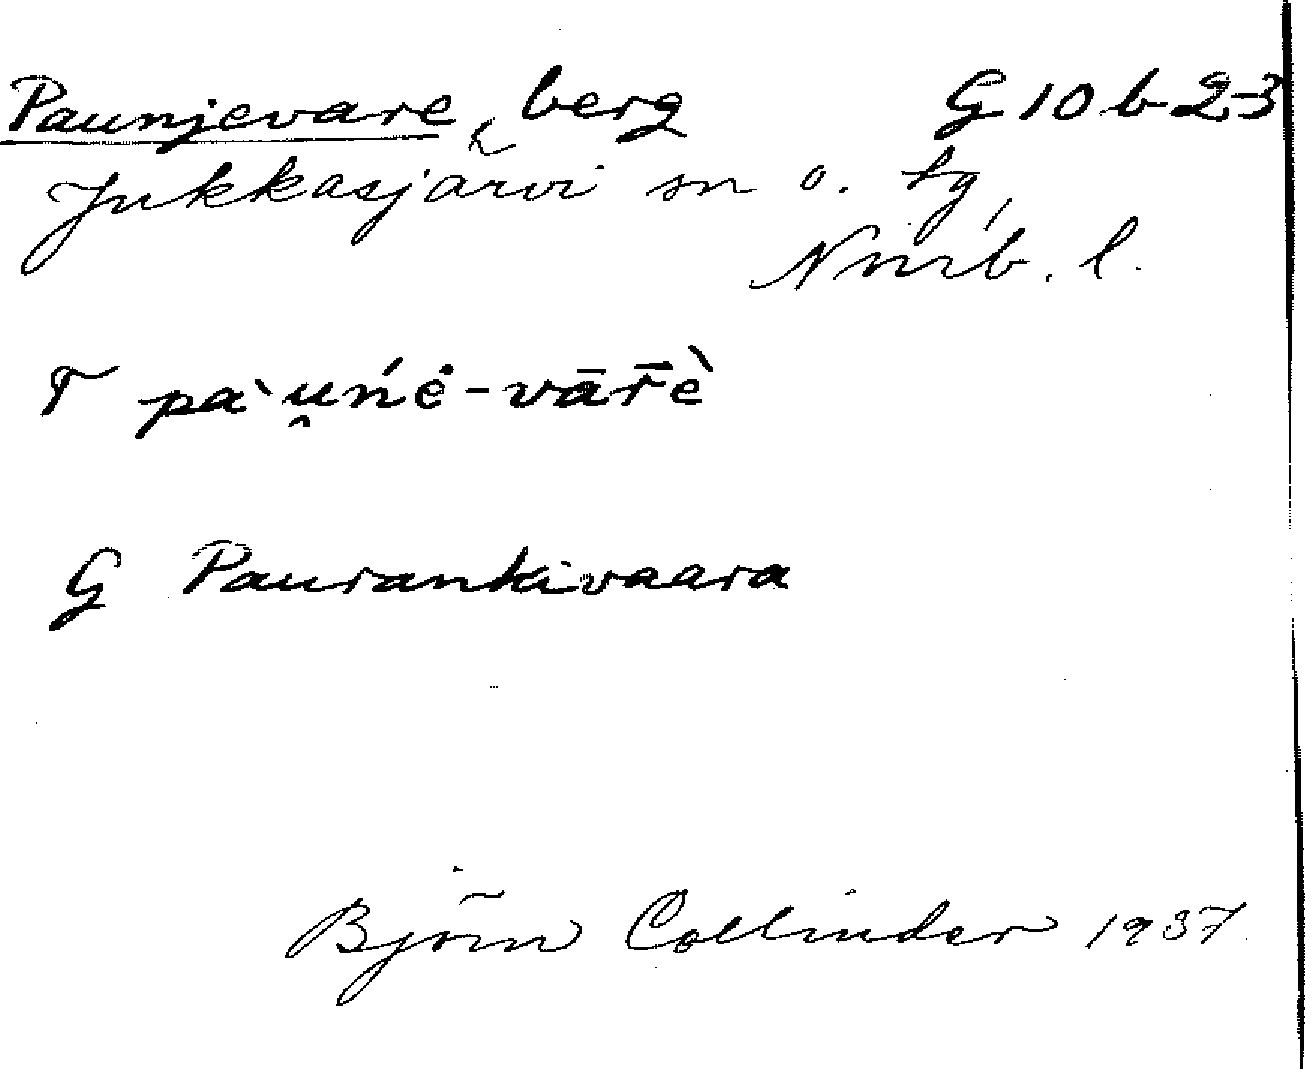 Paunjevare, berg G 10 b 2-3
Jukkasjärvi sn o. tg,
Nrrb. l.
T pàu̯ńė-vār̄ὲ
G Paurankivaara
Björn Collinder 1937